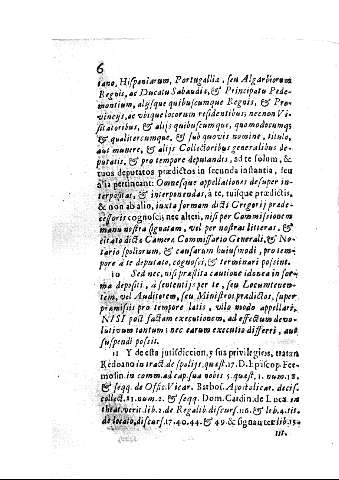 6
tano, Hispaniarum, Portugalliæ, seu Algarbiorum
Regnis, ac Ducatu Sabaudiæ, & Principatu Pede-
montium, alijsque quibuscumque Regnis, & Pro-
vincijs, ac vbique locorum residentibus; necnon Vi-
sitatoribus, & alijs quibuscumque, quomodocumq;
& qualitercumque, & sub quovis nomine, titulo,
aut munere, & alijs Collectoribus generalibus de-
putatis, & pro tempore deputandis, ad te solum, &
tuos deputatos prædictos in secunda instantia, seu
alia pertineant: Omnesque appellationes desuper in-
terpositas, & interponendas, à te, tuisque prædictis,
& non ab alio, iuxta formam dicti Gregorij præde-
cessoris cognosci; nec alteri, nisi per Commissionem
manu nostra signatam, vel per nostras litteras, &
citato dicto Cameræ Commissario Generali, & No-
tario spoliorum, & causarum huiusmodi, pro tem-
pore à te deputato, cognosci, & terminari possint.
10 Sed nec, nisi præstita cautione idonea in for-
ma depositi, à sententijs per te, seu Locumtenen-
tem, vel Auditorem, seu Ministros prædictos, super
præmissis pro tempore latis, vllo modo appellari,
NISI post factam executionem, ad effectum devo-
lutivum tantum; nec earum executio differri, aut
suspendi possit.
11 Y de esta jurisdiccion, y sus privilegios, tratan
Redoano in tract. de spolijs, quæst. 17. D. Episcop. Fer-
mosin. in comm. ad cap. sua nobis 5. quæst. 1. num. 18.
& seqq. de Offic. Vicar. Barbos. Apostolicar. decis.
collect. 23. num. 2. & seqq. Dom. Cardin. de Luca. in
theat. verit. lib. 2. de Regalib. discurs. 116. & lib. 4. tit.
de locato, discurs. 17. 40. 44. & 49. & signanter lib. 15.
tit.